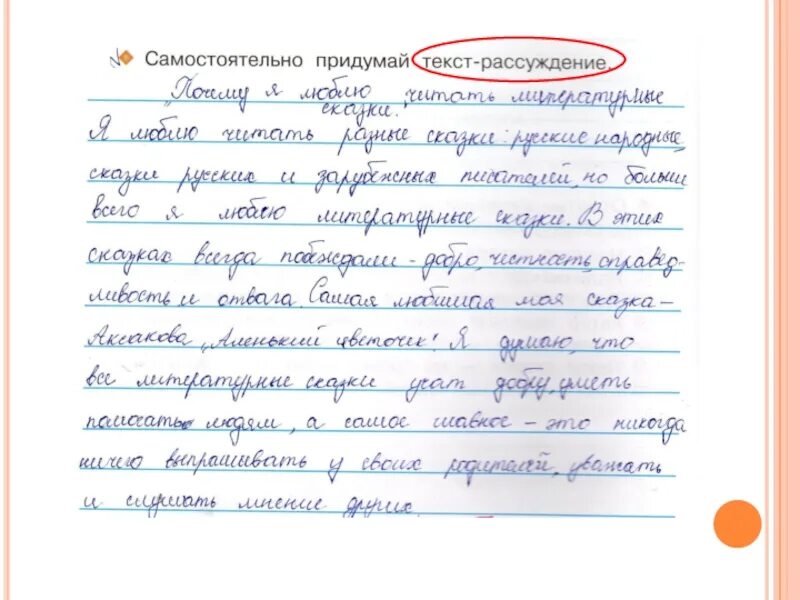 Самостоятельно придумай текст-рассуждение.
„Почему я люблю читать литературные
сказки."
Я люблю читать разные сказки: русские народные,
сказки русских и зарубежных писателей, но больше
всего я люблю литературные сказки. В этих
сказках всегда побеждали - добро, честность, справед-
ливость и отвага. Самая любимая моя сказка -
Аксакова „Аленький цветочек". Я думаю, что
все литературные сказки учат добру, уметь
помогать людям, а самое главное - это никогда
ничего выпрашивать у своих родителей, уважать
и слушать мнение других.